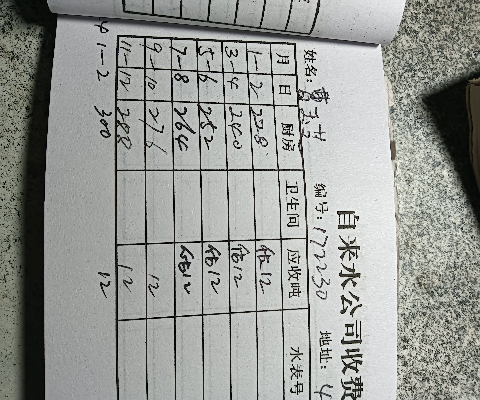 自来水公司收费
姓名: 编号: 172230 地址: 4
月 日 厨房 卫生间 应收吨 水表号
1-2 228 估12
3-4 240 估12
5-6 252 估12
7-8 264 估12
9-10 276 12
11-12 288 12
1-2 300 12